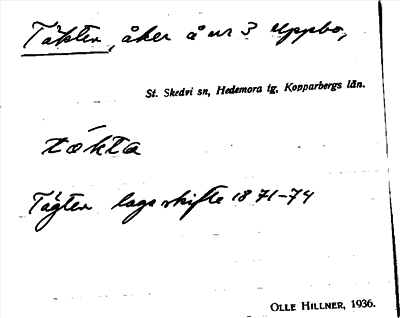 Täkten, åker å nr 3 Uppbo,
St. Skedvi sn, Hedemora tg, Kopparbergs län.
tǽkta
Tägten laga skifte 1871-74
OLLE HILLNER, 1936.